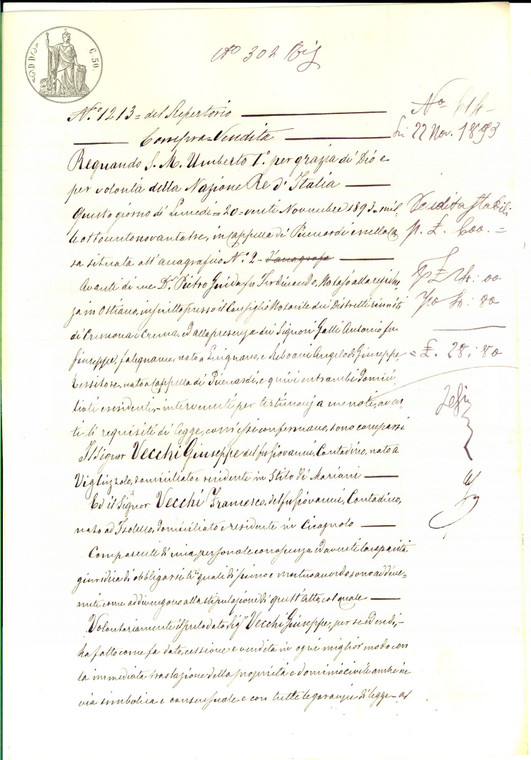 C. 50
N.° 302 Bis
N.° 1213 = del Repertorio
Compra-Vendita
Regnando S. M. Umberto 1.° per grazia di Dio e
per volontà della Nazione Re d'Italia
Questo giorno di Lunedì = 20 = venti Novembre 1893 = mil
le ottocentonovantatre, in Cappella di Picenardi e nella ca
sa situata all'anagrafico N.° 2
Avanti di me D.r Pietro Guida fu Ferdinando, Notajo alla residen
za in Ostiano, inscritto presso il Consiglio Notarile dei Distretti riuniti
di Cremona e Crema, dalla presenza dei Signori Galli Antonio fu
Giuseppe, falegname, nato a e Angelo di Giuseppe
Tessitore, nato a Cappella di Picenardi, e quivi entrambi domici
liati e residenti, intervenuti per testimonj a me noti, aven
ti i requisiti di legge, come essi confermano, sono comparsi
Il Signor Vecchi Giuseppe del fu Giovanni, Contadino, nato a
domiciliato e residente in Stilo de' Mariani
Ed il Signor Vecchi Francesco del fu Giovanni, Contadino,
nato ad Isolello, domiciliato e residente in Cicognolo
Comparenti di mia personale conoscenza ed aventi la capacità
giuridica di obbligarsi, li quali di pieno e mutuo accordo sono addive
nuti come addivengono alla stipulazione di quest'atto, col quale
Volontariamente il prelodato Sig.r Vecchi Giuseppe, per sé ed eredi,
ha fatto come fa data, cessione e vendita in ogni miglior modo con
la immediata traslazione della proprietà e dominio civile anche in
via simbolica e consensuale e con tutte le garanzie di legge al
N.°
li 22 Nov. 1893
Vendita Stabili
p. £. 600. =
= £. 28: 80